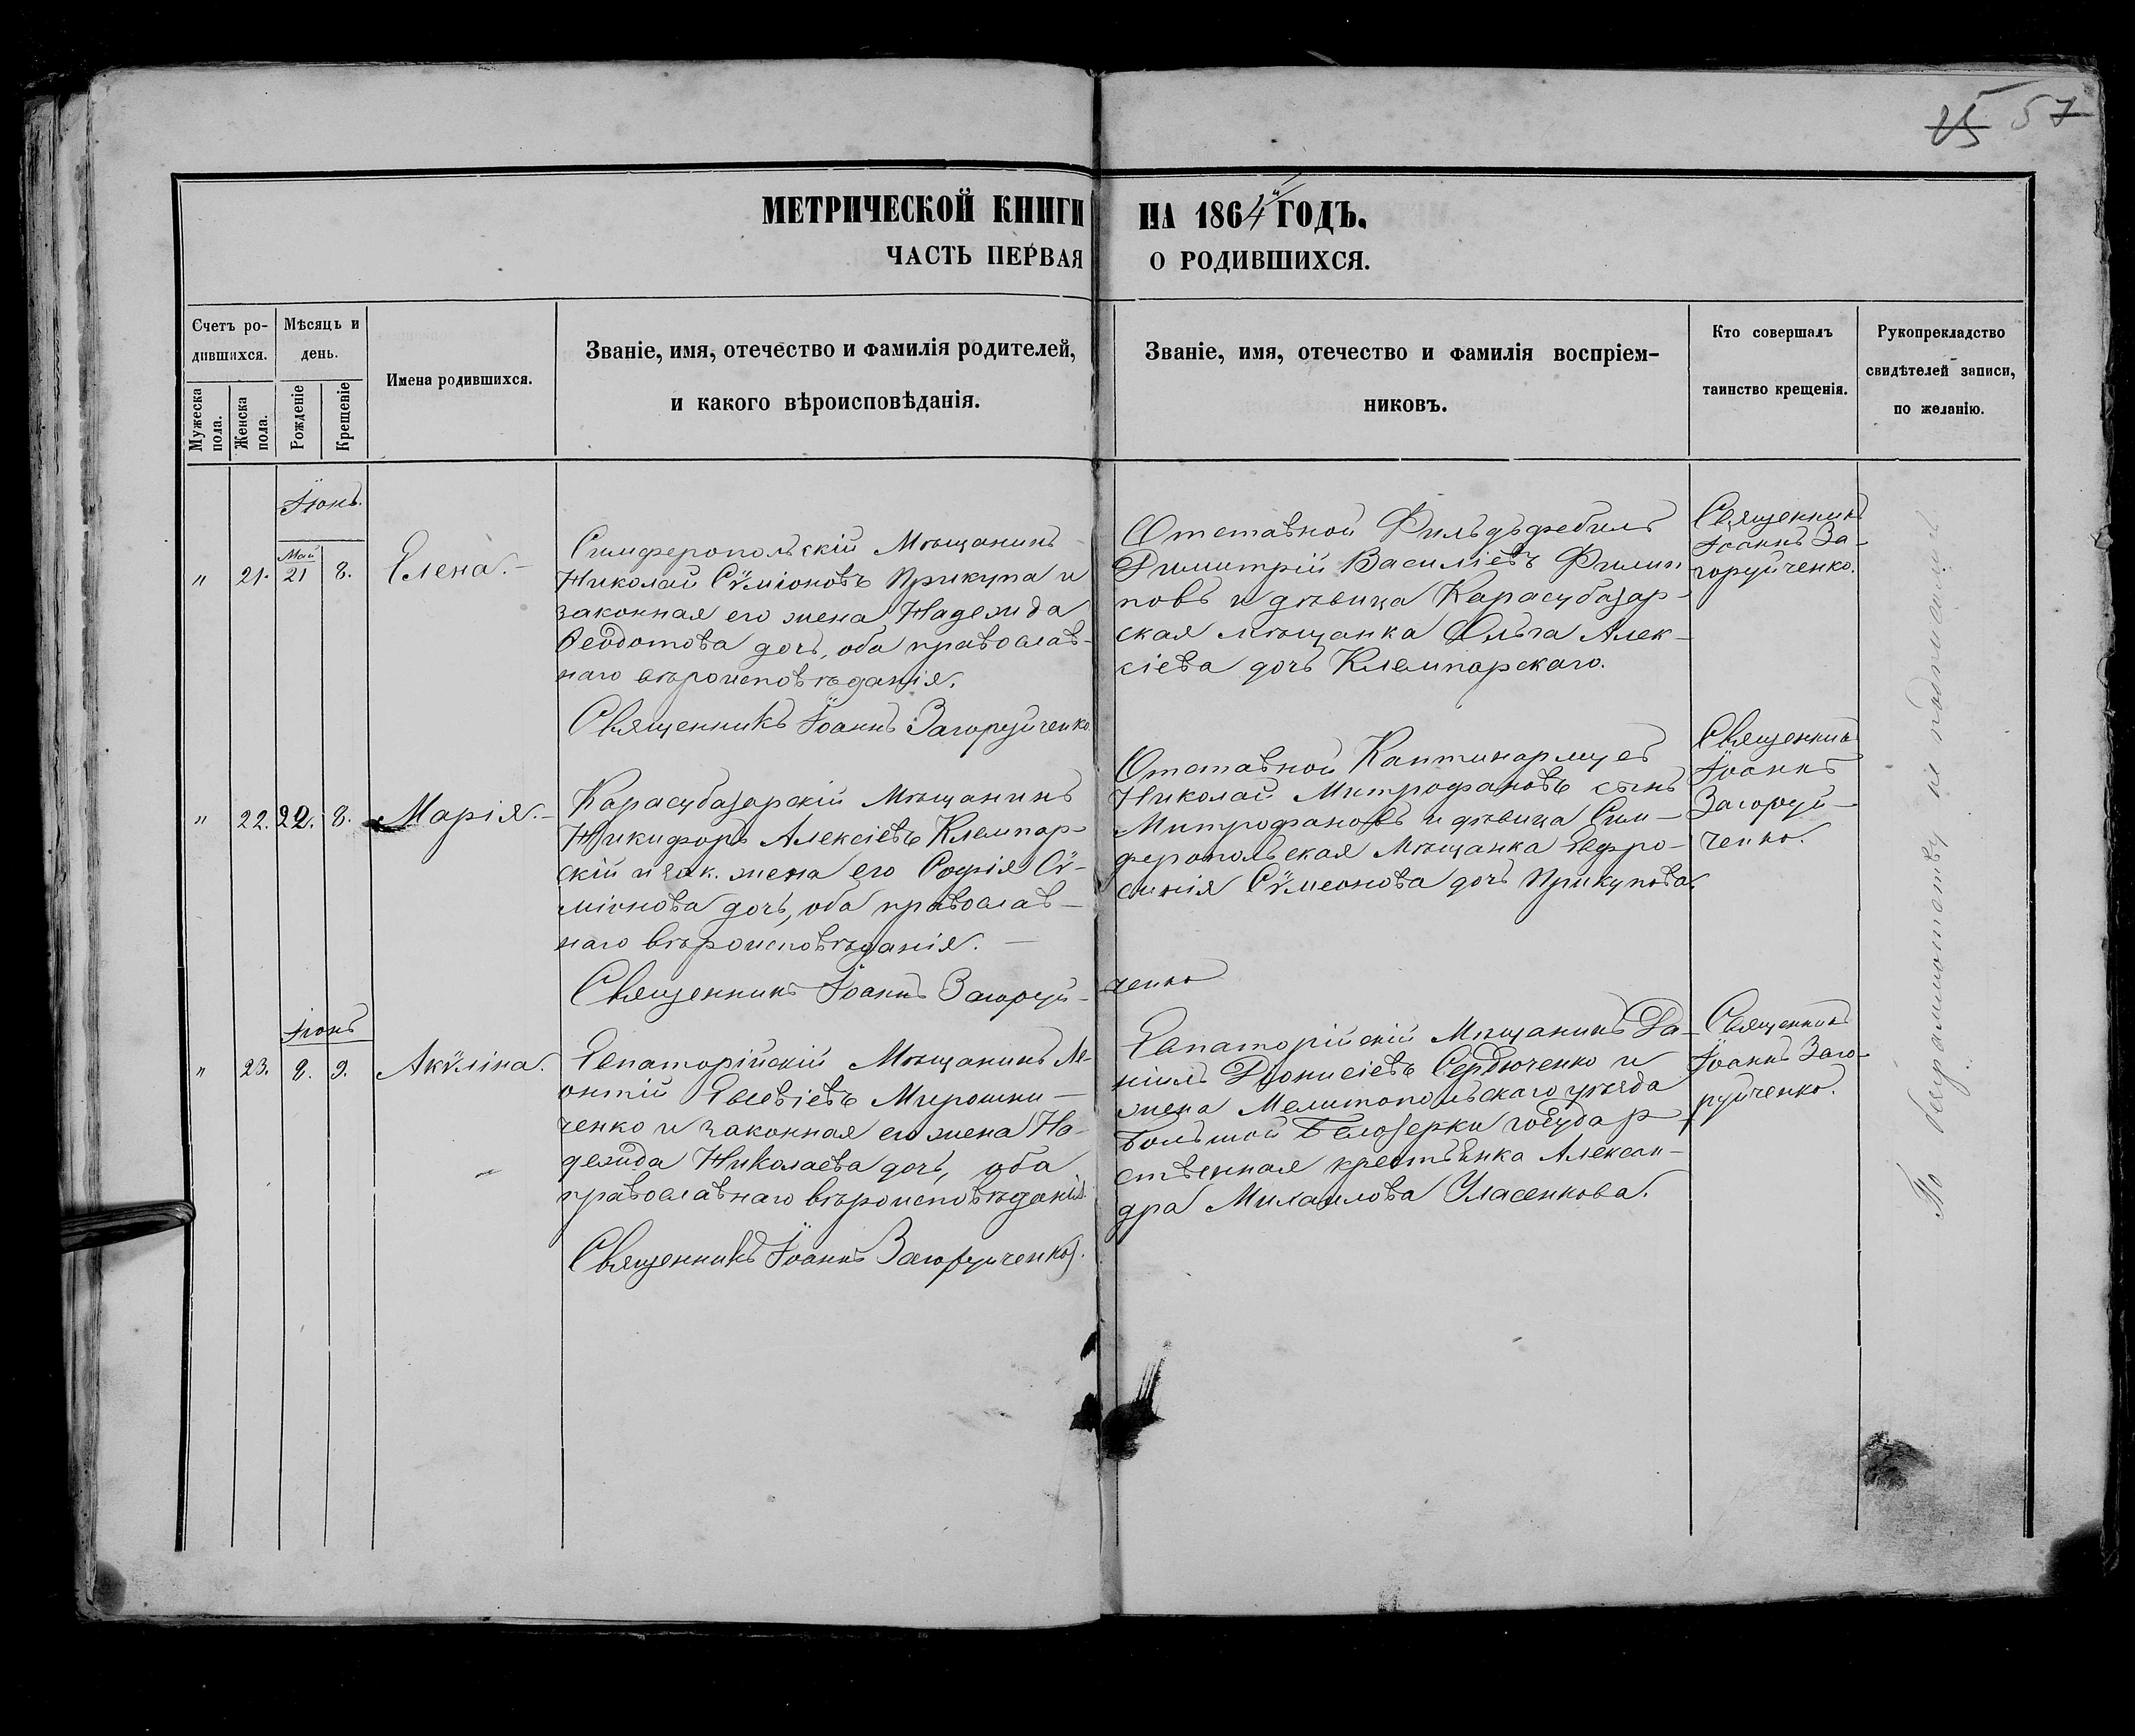 25 57
МЕТРИЧЕСКОЙ КНИГИ НА 1864 ГОДЪ.
ЧАСТЬ ПЕРВАЯ О РОДИВШИХСЯ.
Счетъ ро-
дившихся.
Мужеска
пола.
Женска
пола.
Мѣсяцъ и
день.
Рожденіе
Крещеніе
Имена родившихся.
Званіе, имя, отечество и фамилія родителей,
и какого вѣроисповѣданія.
Званіе, имя, отечество и фамилія воспріем-
никовъ.
Кто совершалъ
таинство крещенія.
Рукоприкладство
свидѣтелей записи,
по желанію.
Іюнь.
" 21. Май 21 8. Елена.
Симферопольскій Мѣщанинъ
Николай Сѵміоновъ Прикупа и
законная его жена Надежда
Ѳеодотова дочь, оба православ-
наго вѣроисповѣданія.
Священникъ Іоаннъ Загоруйченко.
Отставной Фильдъфебиль
Димитрій Василіевъ Филип
повъ и дѣвица Карасубазар-
ская мѣщанка Ольга Алек-
сіева дочь Клемпарскаго.
Священникъ
Іоаннъ За-
горуйченко.
" 22. 22. 8. Марія.
Карасубазарскій Мѣщанинъ
Никифоръ Алексіевъ Клемпар-
скій и зак. жена его Софія Сѵ-
міонова дочь, оба православ-
наго вѣроисповѣданія.
Священникъ Іоаннъ Загоруй-
ченко
Отставной Каптинармусъ
Николай Митрофановъ сынъ
Митрофановъ и дѣвица Сим-
феропольская Мѣщанка Евфро-
синія Сѵмеонова дочь Прикупова
Священникъ
Іоаннъ
Загоруй-
ченко.
Іюнь
" 23. 8. 9. Акѵліна.
Евпаторійскій Мѣщанинъ Ле-
онтій Евсевіевъ Мирошни-
ченко и законная его жена На-
дежда Николаева дочь, оба
православнаго вѣроисповѣданія.
Священникъ Іоаннъ Загоруйченко.
Евпаторійскій Мѣщанинъ Да-
ніилъ Діонисіевъ Сердюченко и
жена Мелитопольскаго уѣзда
Большой Белозерки государ-
ственная крестьянка Алексан-
дра Михаилова Уласенкова.
Священникъ
Іоаннъ Заго-
руйченко.
По безграмотству не подписались